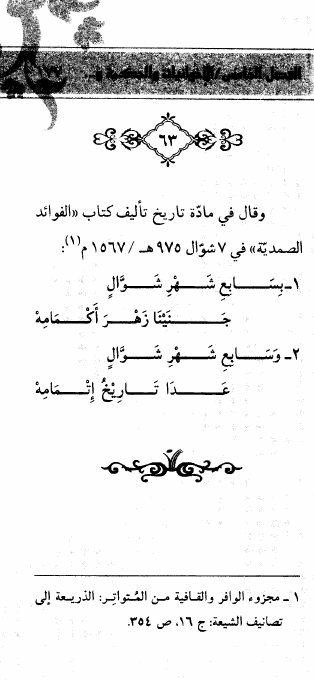 الفصل الخامس/الإخوانيات والحكمية و...
٦٣
وقال في مادّة تاريخ تأليف كتاب «الفوائد
الصمديّة» في ٧ شوّال ٩٧٥ هـ / ١٥٦٧ م(١):
١- بِسَـابِعِ شَـهْرِ شَـوَّالٍ
جَـنَيْنَا زَهْـرَ أَكْـمَامِهْ
٢- وَسَـابِعِ شَـهْرِ شَـوَّالٍ
غَـدَا تَـارِيْخُ إِتْـمَامِهْ
١ - مجزوء الوافر والقافية من المُتواتِر: الذريعة إلى
تصانيف الشيعة: ج ١٦، ص ٣٥٤.